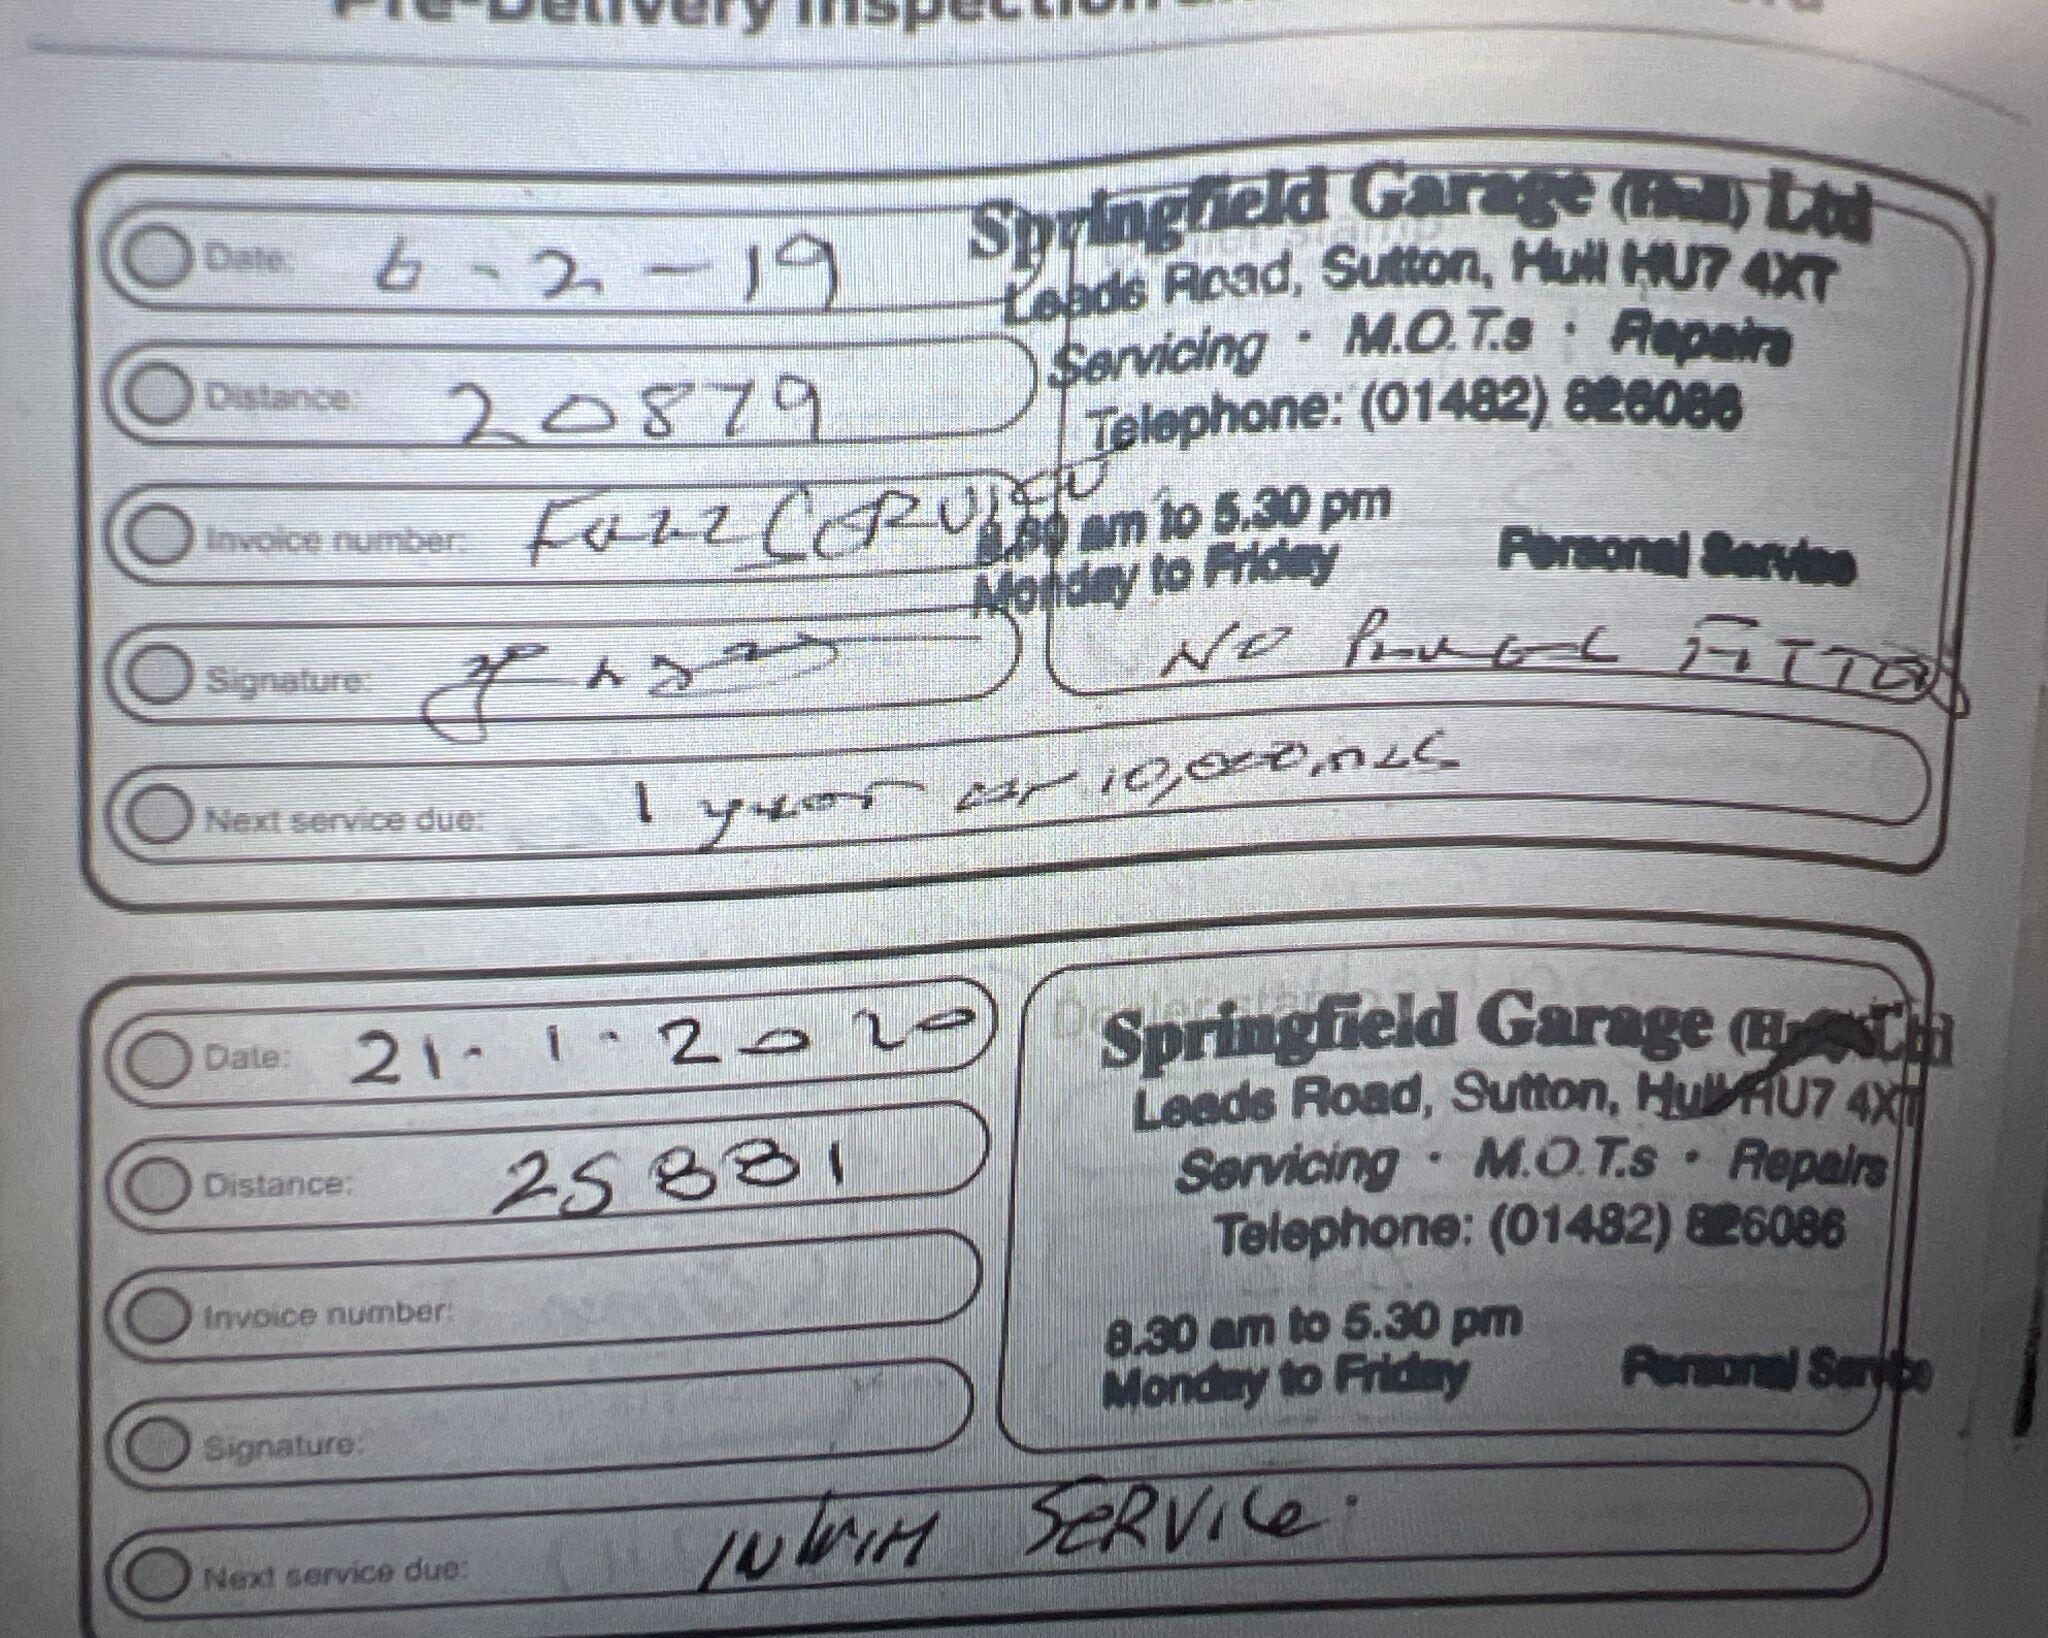 Pre-Delivery Inspection
Springfield Garage (Hull) Ltd
Leads Road, Sutton, Hull HU7 4XT
Servicing · M.O.T.s · Repairs
Telephone: (01482) 826086
8.30 am to 5.30 pm
Monday to Friday Personal Service
Date: 6-2-19
Distance: 20879
Invoice number: Full Service
Signature:
No Pollen Fitted
Next service due: 1 year or 10,000 miles
Springfield Garage (Hull) Ltd
Leads Road, Sutton, Hull HU7 4XT
Servicing · M.O.T.s · Repairs
Telephone: (01482) 826086
8.30 am to 5.30 pm
Monday to Friday Personal Service
Date: 21.1.2020
Distance: 25881
Invoice number:
Signature:
Next service due: SERVICE.